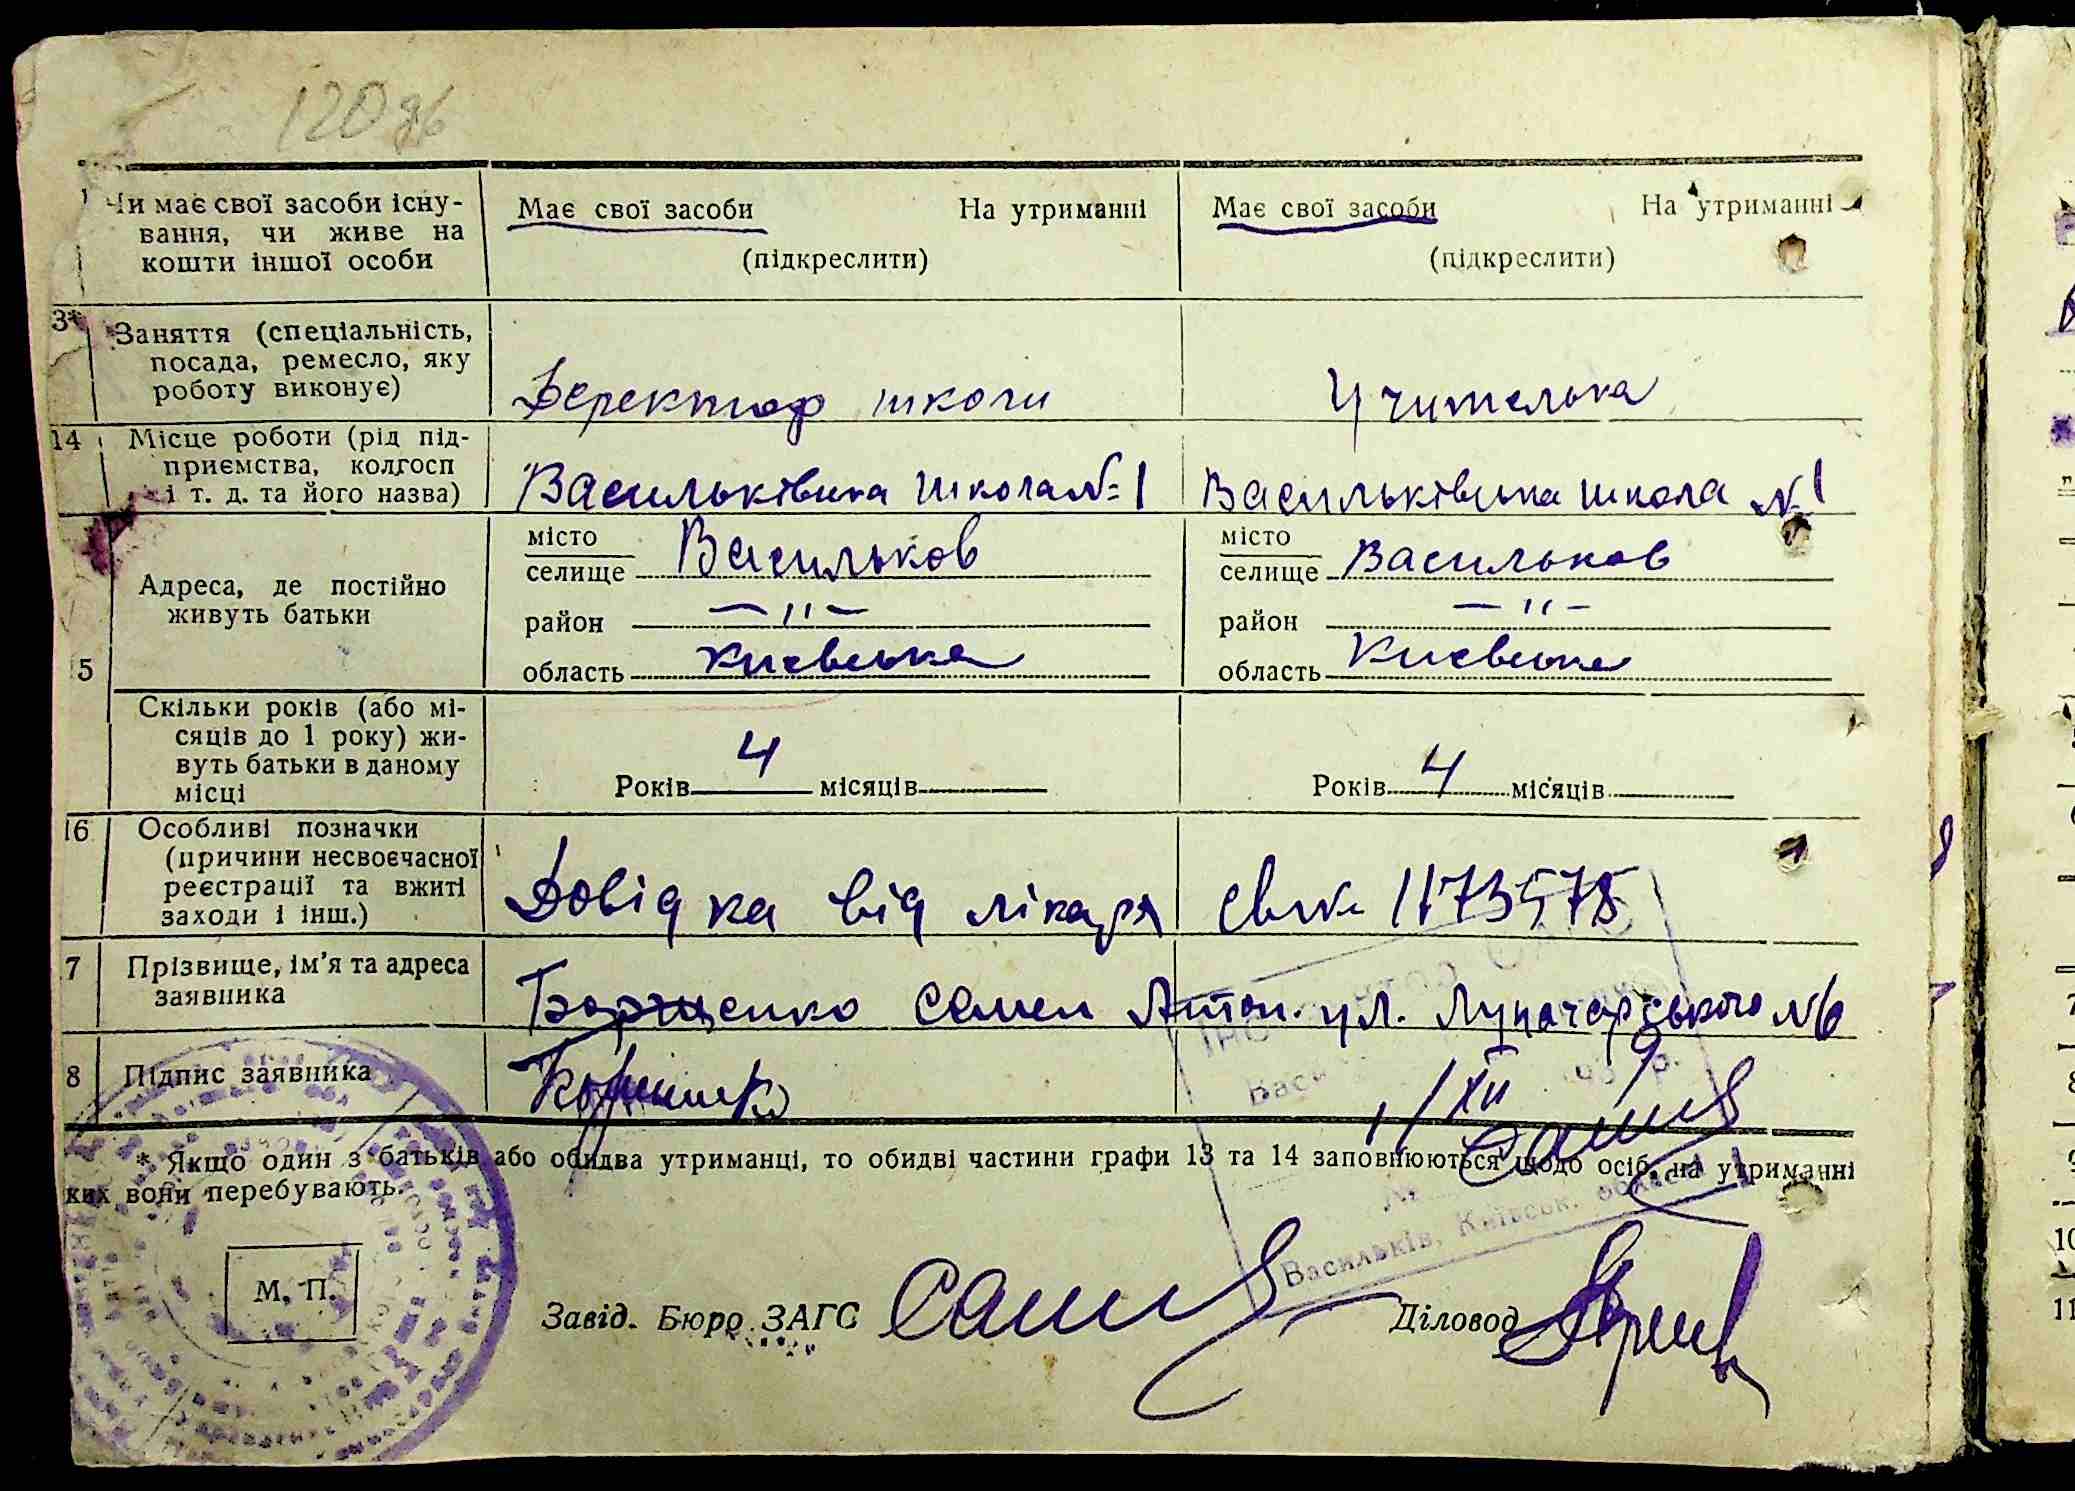 120 зв
Чи має свої засоби існу-
вання, чи живе на
кошти іншої особи
Має свої засоби На утриманні
(підкреслити)
Має свої засоби На утриманні
(підкреслити)
3*
Заняття (спеціальність,
посада, ремесло, яку
роботу виконує)
Деректор школи
Учителька
14
Місце роботи (рід під-
приємства, колгосп
і т. д. та його назва)
Васильківська школа № 1
Васильківська школа № 1
5
Адреса, де постійно
живуть батьки
місто
селище Васильков
район — " —
область Києвська
місто
селище Васильков
район — " —
область Києвська
Скільки років (або мі-
сяців до 1 року) жи-
вуть батьки в даному
місці
Років 4 місяців
Років 4 місяців
16
Особливі позначки
(причини несвоєчасної
реєстрації та вжиті
заходи і інш.)
Довідка від лікаря
1173578
7
Прізвище, ім'я та адреса
заявника
Борщенко Семен Антон. ул. Луначарського №6
8
Підпис заявника
1/XII
* Якщо один з батьків або обидва утриманці, то обидві частини графи 13 та 14 заповнюються щодо осіб, на утриманні
ких вони перебувають.
Васильків, Київськ. област
М. П.
Завід. Бюро ЗАГС
Діловод